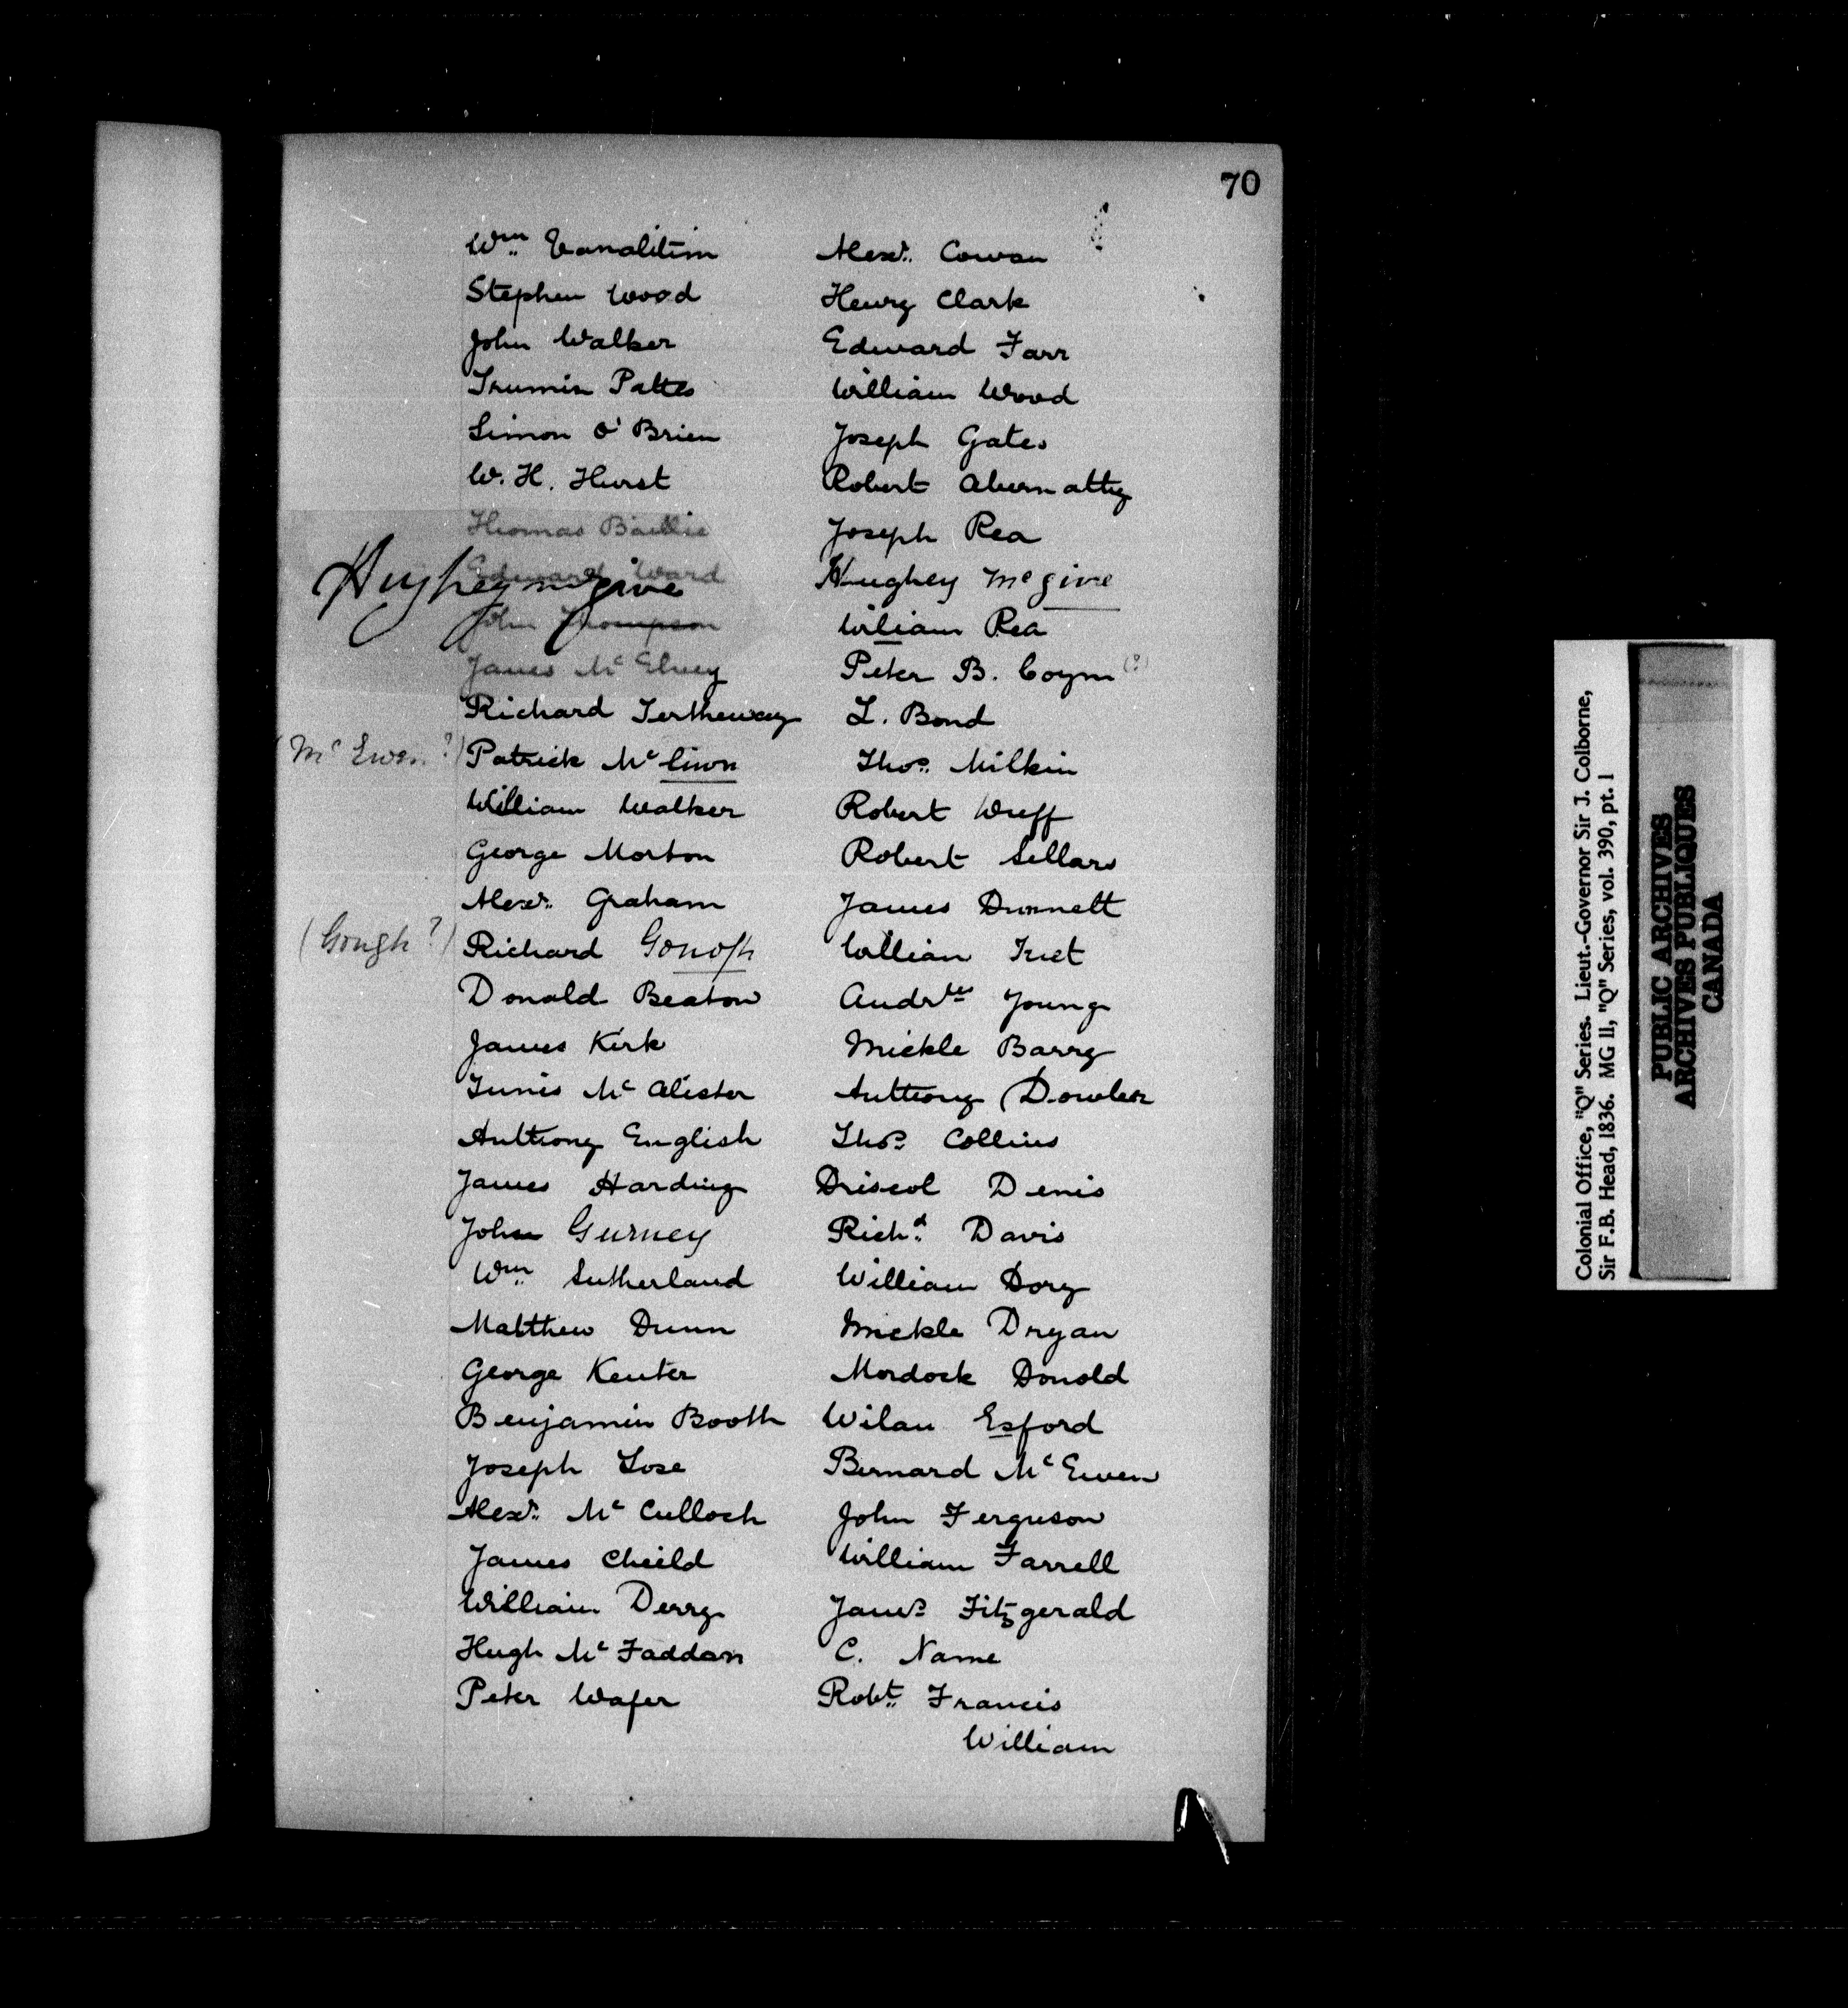 70
Wm. Vanalitim
Stephen Wood
John Walker
Trumin Pattes
Simon O'Brien
W. H. Hurst
Thomas Baillie
Edward Ward
Hughey McGive
John Thompson
James Mc Elvey
Richard Tertheway
(McEwen?) Patrick Mc Ciwn
William Walker
George Morton
Alexr. Graham
(Gough?) Richard Gonofh
Donald Beaton
James Kirk
Tunis Mc Alister
Anthony English
James Harding
John Gurney
Wm. Sutherland
Matthew Dunn
George Kenter
Benjamin Booth
Joseph Lose
Alexr. Mc Culloch
James Cheild
William Derry
Hugh Mc Faddan
Peter Wafer
Alexr. Cowan
Henry Clark
Edward Farr
William Wood
Joseph Gates
Robert Abernatthy
Joseph Rea
Hughey McGive
Wiliam Rea
Peter B. Coym (?)
L. Bond
Thos. Milkin
Robert Wreff
Robert Sellars
James Dunnett
William
Young
Mickle Barry
Anthony Dowler
Thos. Collins
Driscol Denis
Richd. Davis
William Dory
Mickle Dryan
Mordock Donold
Wilau Esford
Bernard Mc Ewen
John Ferguson
William Farrell
Jams. Fitzgerald
C. Name
Robt. Francis
William
Colonial Office, "Q" Series. Lieut.-Governor Sir J. Colborne,
Sir F.B. Head, 1836. MG 11, "Q" Series, vol. 390, pt. 1
PUBLIC ARCHIVES
ARCHIVES PUBLIQUES
CANADA